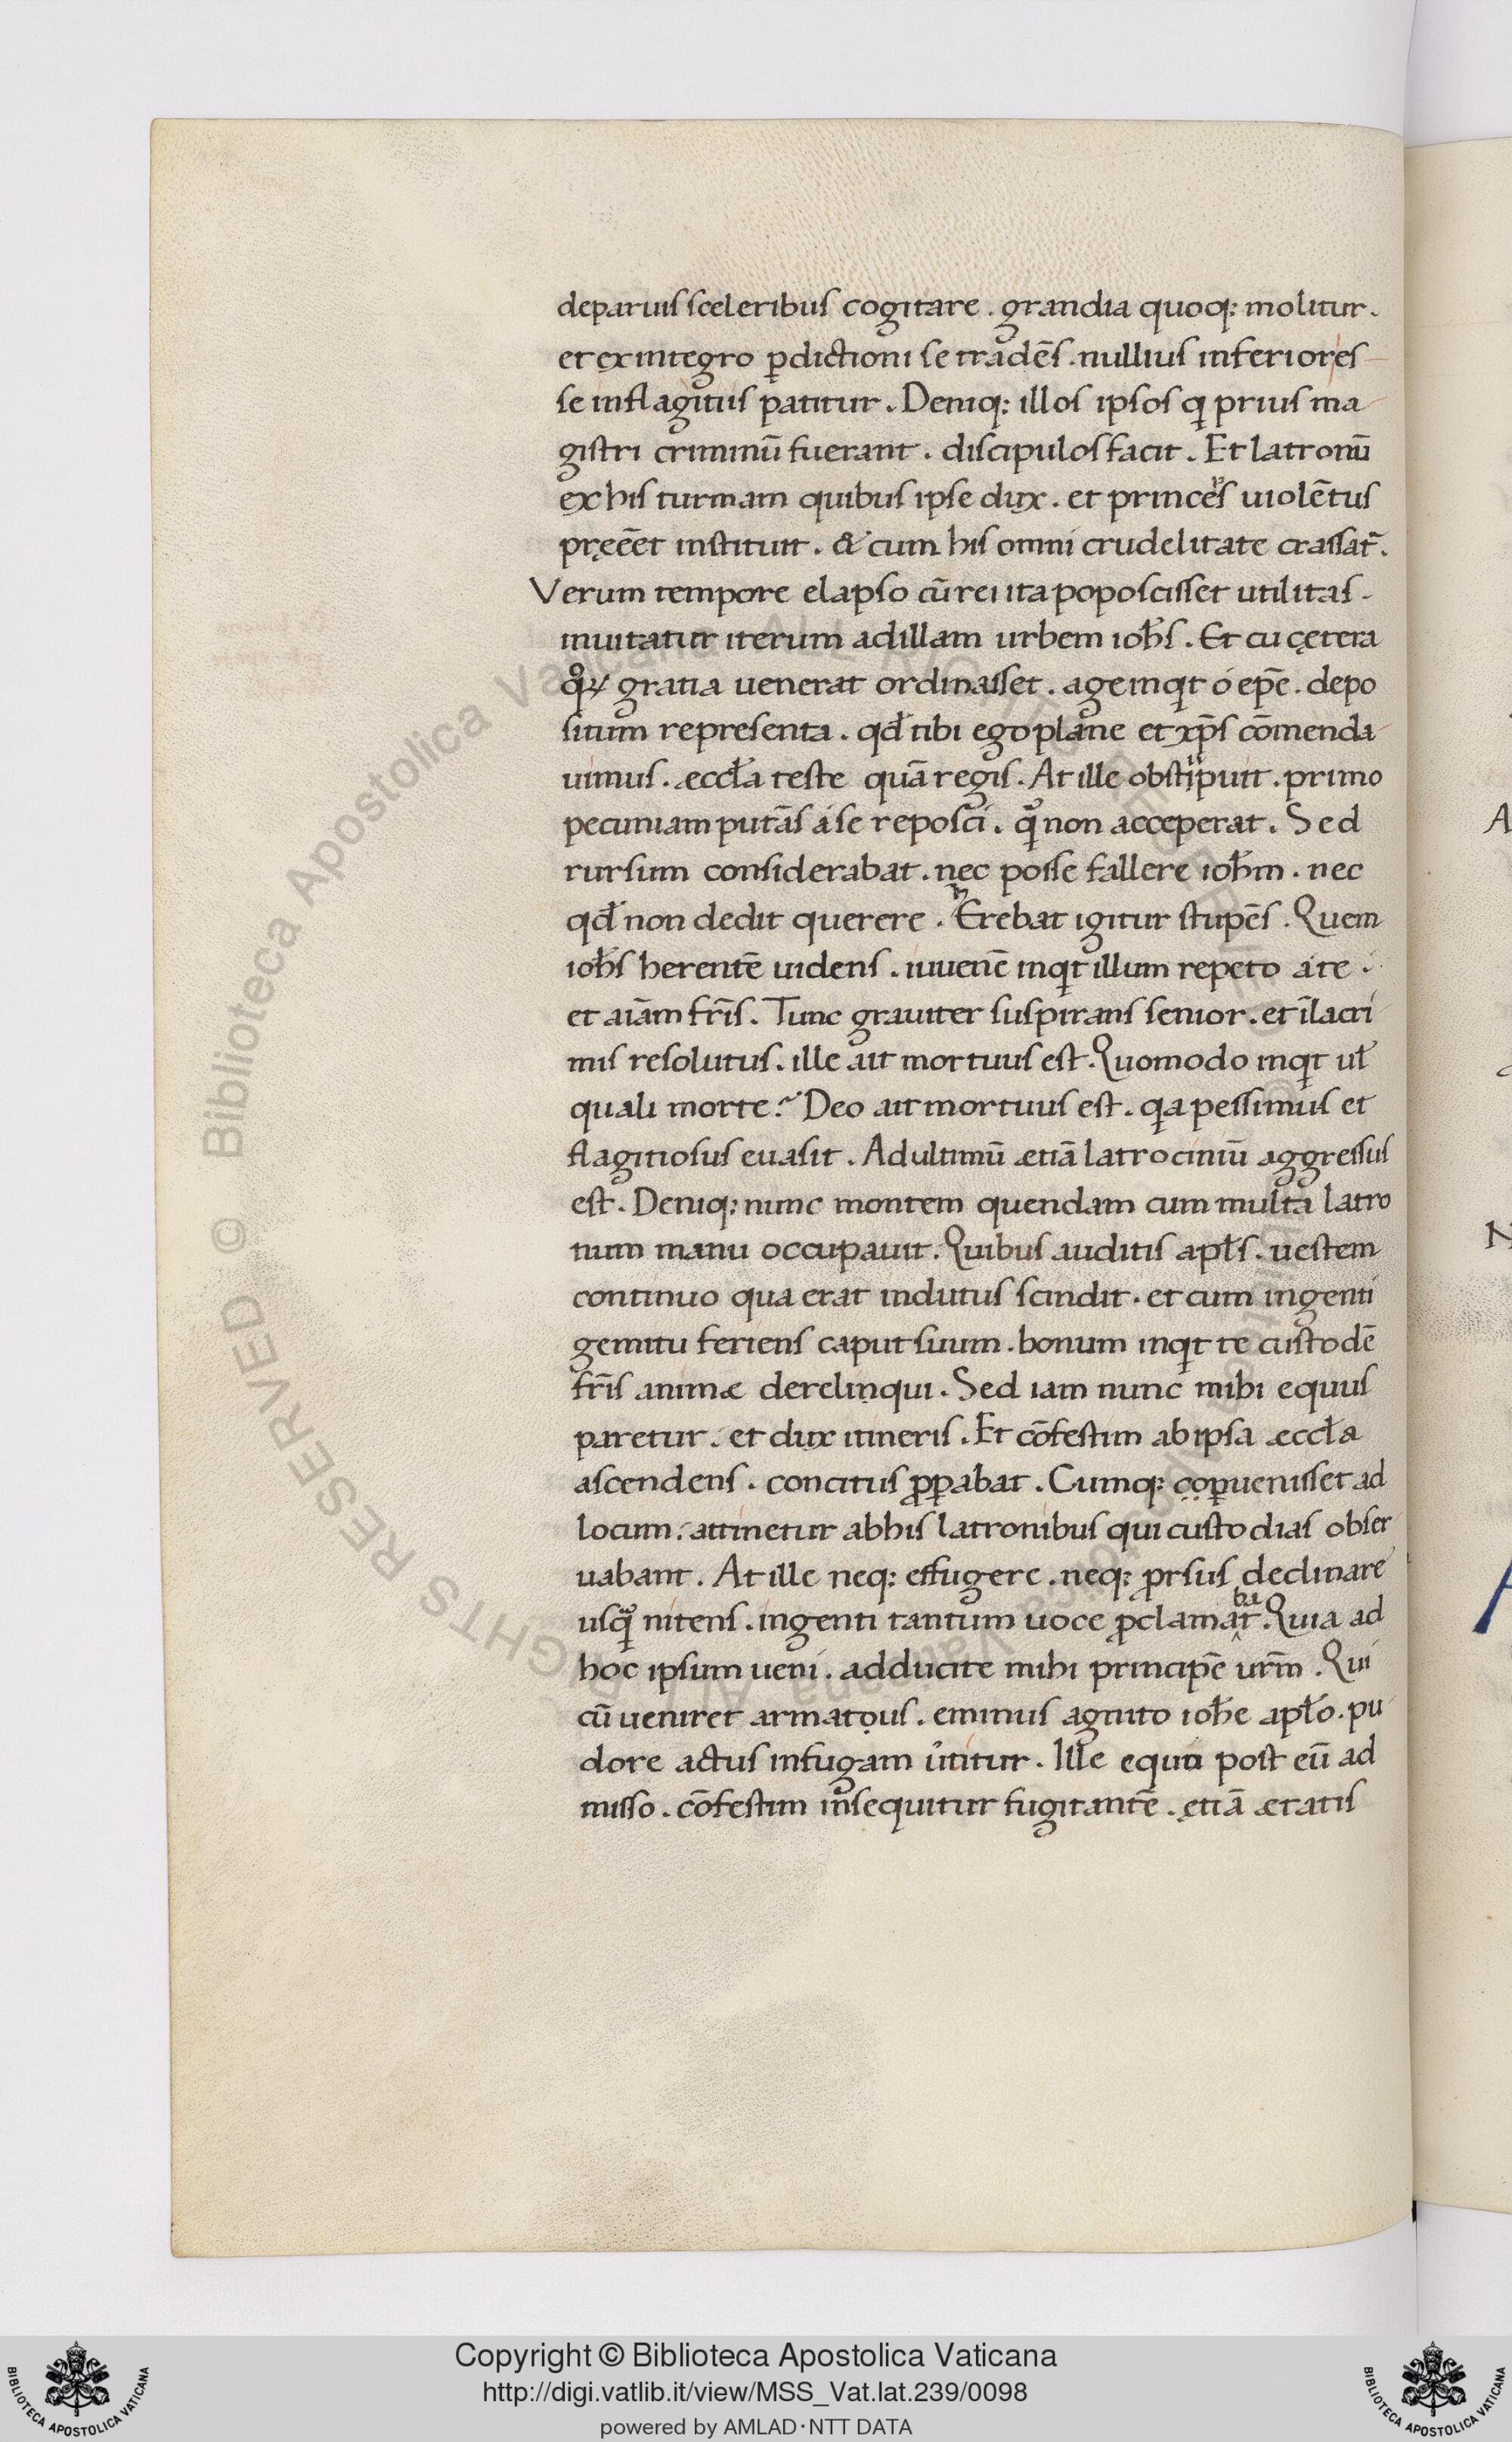 deparuis sceleribus cogitare . grandia quoq; molitur .
et ex integro ꝑdictioni se tradēs . nullius inferiores
se inflagitiis patitur . Deniq; illos ipsos q prius ma
gistri criminū fuerant . discipulos facit . Et latronū
ex his turmam quibus ipse dux . et princeps uiolētus
pręeēt instituit . & cum his omni crudelitate crassat̄ .
Verum tempore elapso cū rei ita poposcisset utilitas .
inuitatur iterum ad illam urbem ioħs . Et cu cętera
qͦꝝ gratia uenerat ordinasset . age inqt ó ep̄e . depo
situm representa . qđ tibi ego plane et xp̄s cōmenda
uimus . æccła teste quā regis . At ille obstipuit . primo
pecuniam putās á se reposci . qͣ non acceperat . Sed
rursum considerabat . nec posse fallere ioħm . nec
qđ non dedit querere . hErebat igitur stupēs . Quem
ioħs herentē uidens . iuuenē inqt illum repeto á te .
et aīam fr̄is . Tunc grauiter suspirans senior . et ī lacri
mis resolutus . ille ait mortuus est . Quomodo inqt uł
quali morte ? Deo ait mortuus est . qa pessimus et
flagitiosus euasit . Ad ultimū ætiā latrociniū aggressus
est . Deniq; nunc montem quendam cum multa latro
num manu occupauit . Quibus auditis apłs . uestem
continuo qua erat indutus scindit . et cum ingenti
gemitu feriens caput suum . bonum inqt te custodē
fr̄is animæ derelinqui . Sed iam nunc mihi equus
paretur . et dux itineris . Et cōfestim ab ipsa æccła
ascendens . concitus ꝓꝑabat . Cumq; coꝑuenisset ad
locum . attinetur ab his latronibus qui custodias obser
uabant . At ille neq; effugere . neq; ꝓrsus declinare
usqͣ nitens . ingenti tantum uoce ꝓclamabat . Quia ad
hoc ipsum ueni . adducite mihi principē ur̄m . Qui
cū ueniret armatous . eminus agnito ioħe apło . pu
dore actus in fugam u̓titur . Ille equo post eū ad
misso . cōfestim insequitur fugitantē . ętiā ætatis
Copyright © Biblioteca Apostolica Vaticana
http://digi.vatlib.it/view/MSS_Vat.lat.239/0098
powered by AMLAD·NTT DATA